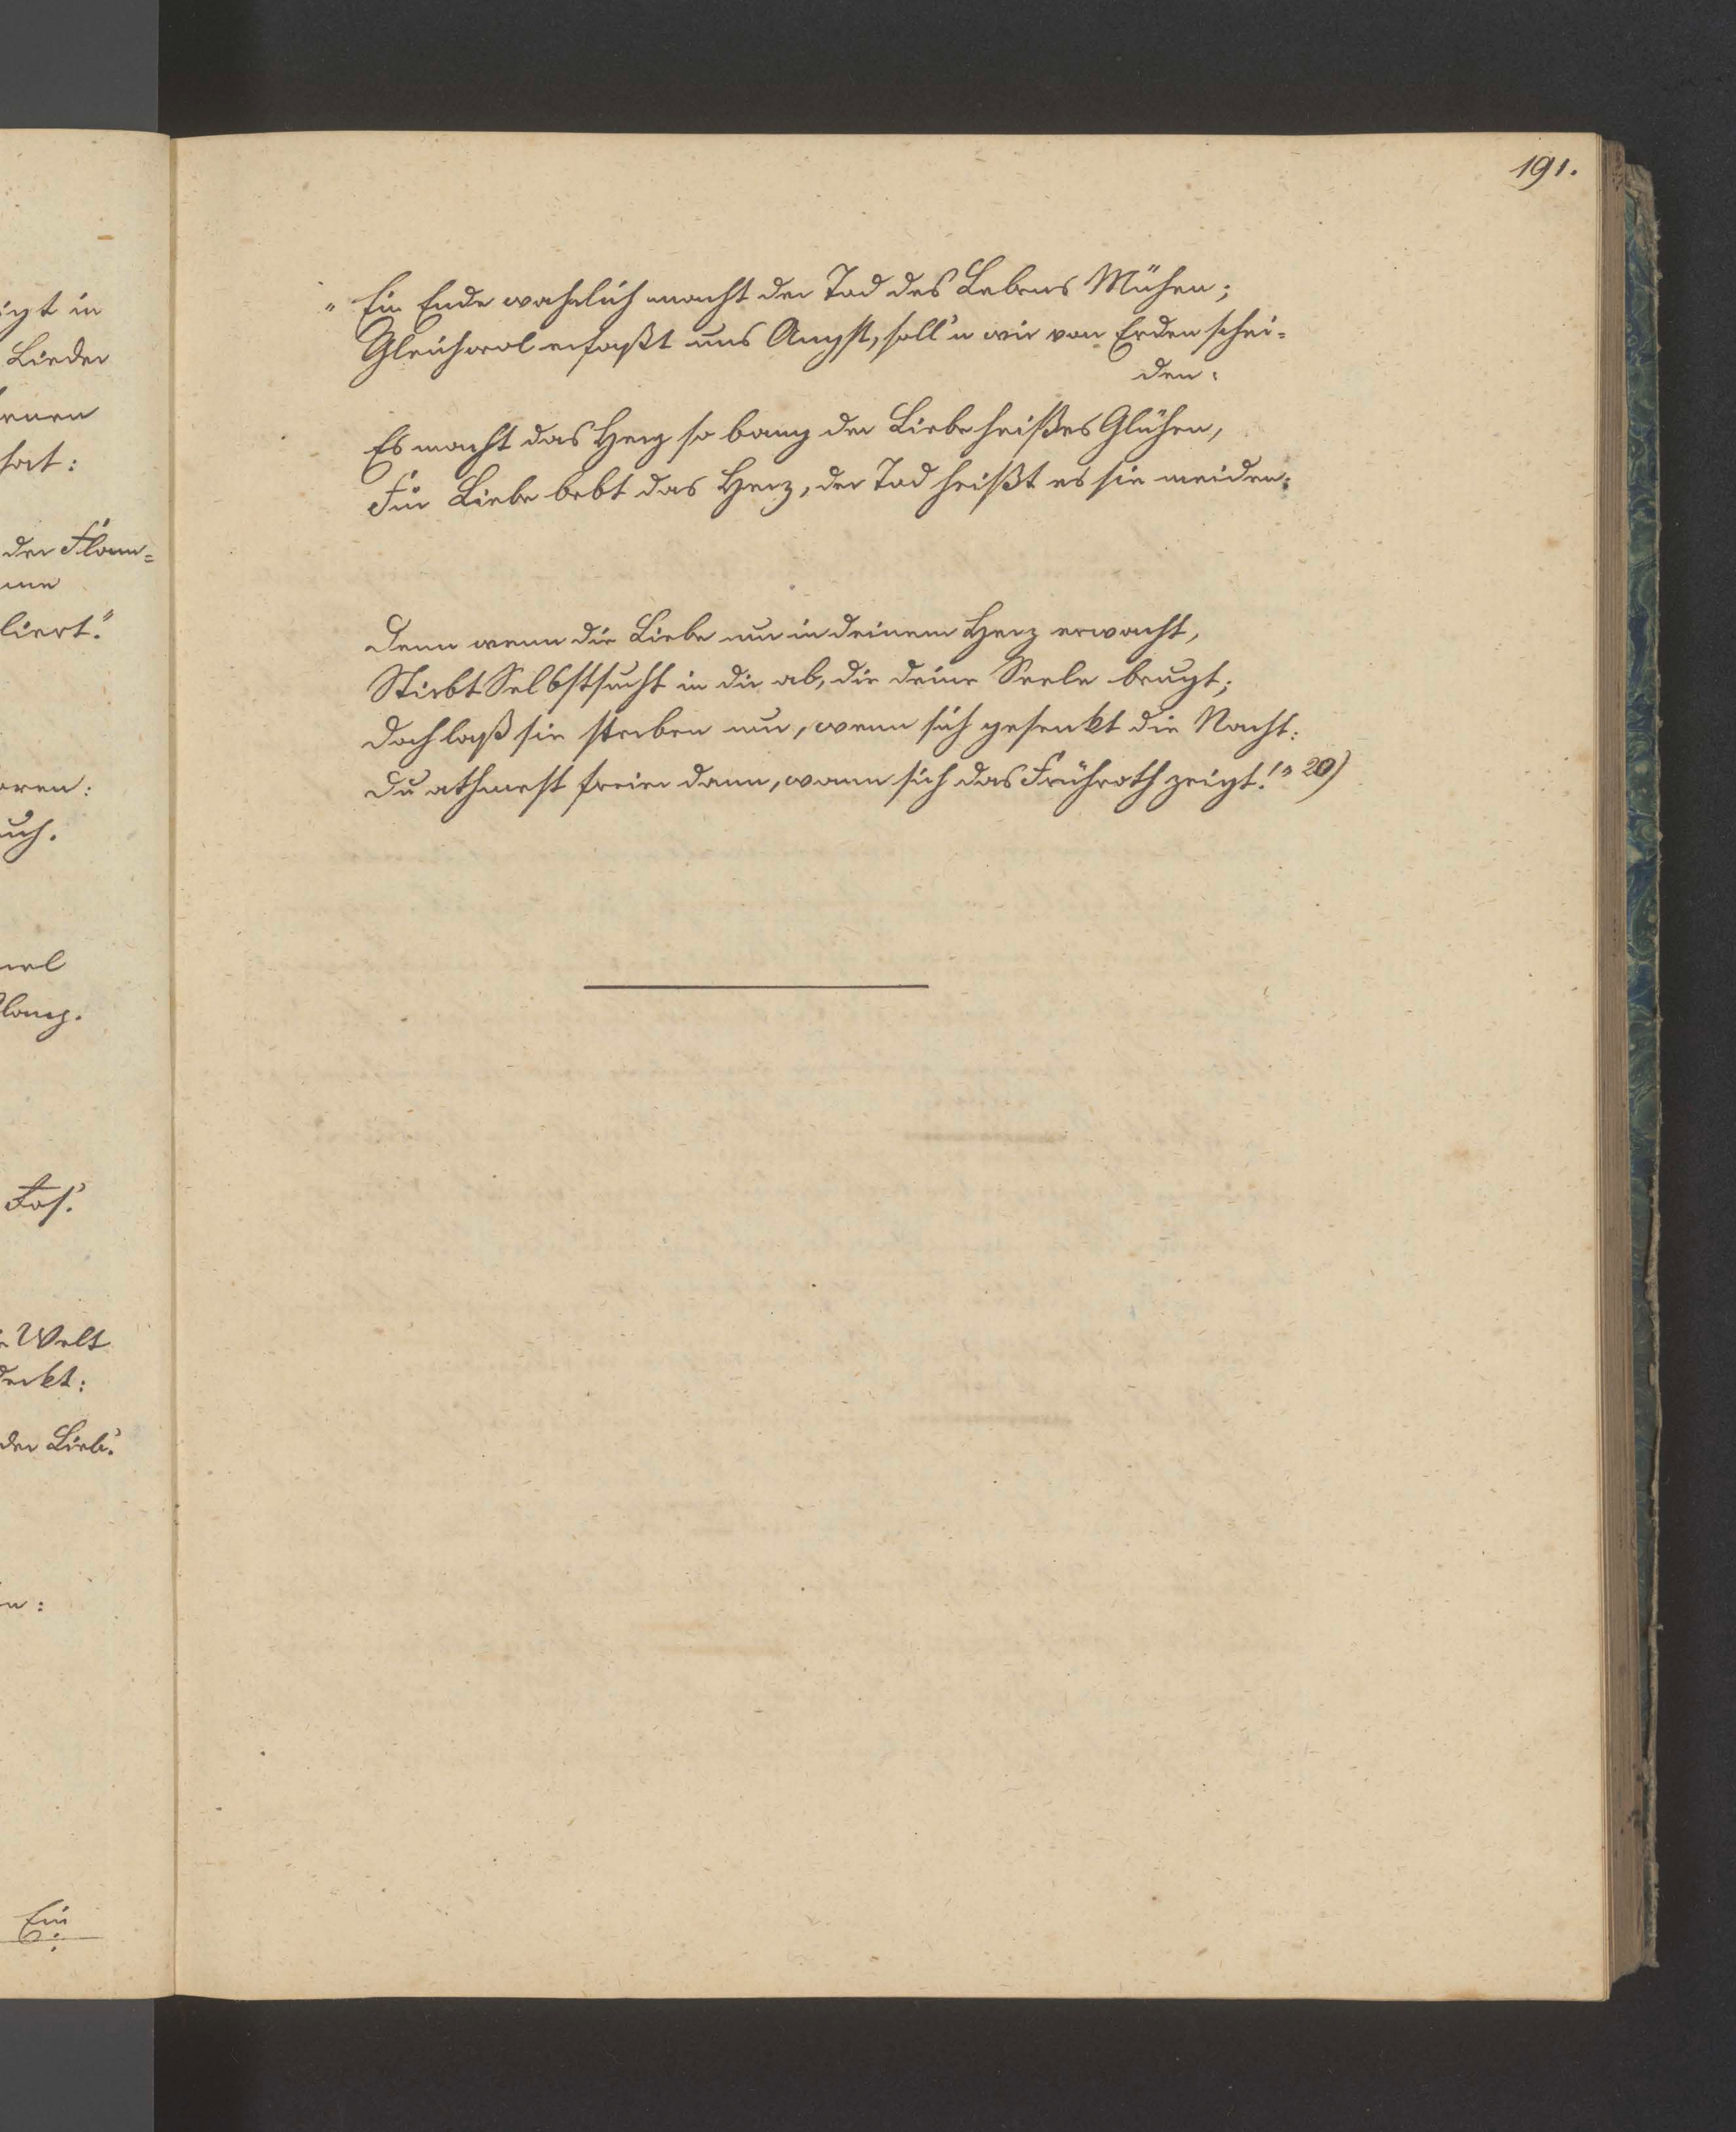 191.
„Ein Ende wahrlich macht der Tod des Lebens Mühen;
Gleichwol erfaßt uns Angst, soll'n wir von Erden schei=
den:
Es macht das Herz so bang der Liebe heißes Glühen,
Für Liebe bebt das Herz, der Tod heißt es sie meiden:
Denn wenn die Liebe nur in deinem Herz erwacht,
Stirbt Selbstsucht in dir ab, die deine Seele beugt;
Doch laß sie sterben nur, wenn sich gesenkt die Nacht:
Du athmest freier dann, wann sich das Frühroth zeigt!" 20)
igt in
Lieder
hat:
der Flam=
me
liert."
oren:
Welt
deckt:
der Lieb'.
Ein